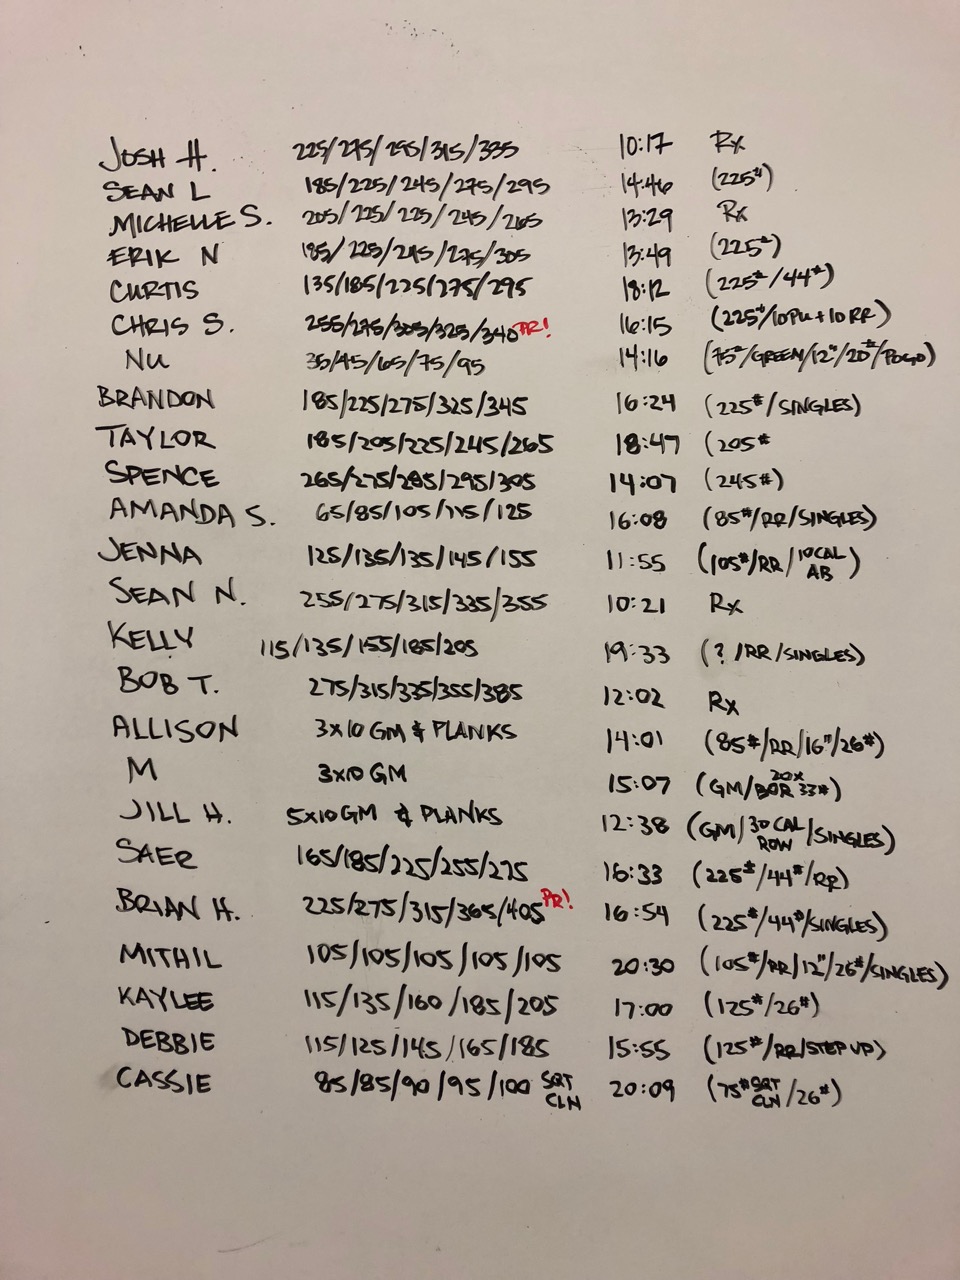 JOSH H. 225/275/295/315/335 10:17 Rx
SEAN L 185/225/245/275/295 14:46 (225#)
MICHELLE S. 205/225/225/245/265 13:29 Rx
ERIK N 185/225/245/275/305 13:49 (225#)
CURTIS 135/185/225/275/295 18:12 (225#/44#)
CHRIS S. 255/275/305/325/340 PR! 16:15 (225#/10PU+10RR)
NU 35/45/65/75/95 14:16 (75#/GREEN/12"/20#/POGO)
BRANDON 185/225/275/325/345 16:24 (225#/SINGLES)
TAYLOR 185/205/225/245/265 18:47 (205#
SPENCE 265/275/285/295/305 14:07 (245#)
AMANDA S. 65/85/105/115/125 16:08 (85#/RR/SINGLES)
JENNA 125/135/135/145/155 11:55 (105#/RR/10CAL AB)
SEAN N. 255/275/315/335/355 10:21 Rx
KELLY 115/135/155/185/205 19:33 (?/RR/SINGLES)
BOB T. 275/315/335/355/385 12:02 Rx
ALLISON 3x10 GM & PLANKS 14:01 (85#/RR/16"/26#)
M 3x10 GM 15:07 (GM/20x BOR 33#)
JILL H. 5x10 GM & PLANKS 12:38 (GM/30 CAL ROW/SINGLES)
SAER 165/185/225/255/275 16:33 (225#/44#/RR)
BRIAN H. 225/275/315/365/405 PR! 16:54 (225#/44#/SINGLES)
MITHIL 105/105/105/105/105 20:30 (105#/RR/12"/26#/SINGLES)
KAYLEE 115/135/160/185/205 17:00 (125#/26#)
DEBBIE 115/125/145/165/185 15:55 (125#/RR/STEP UP)
CASSIE 85/85/90/95/100 SQT CLN 20:09 (75# SQT CLN/26#)